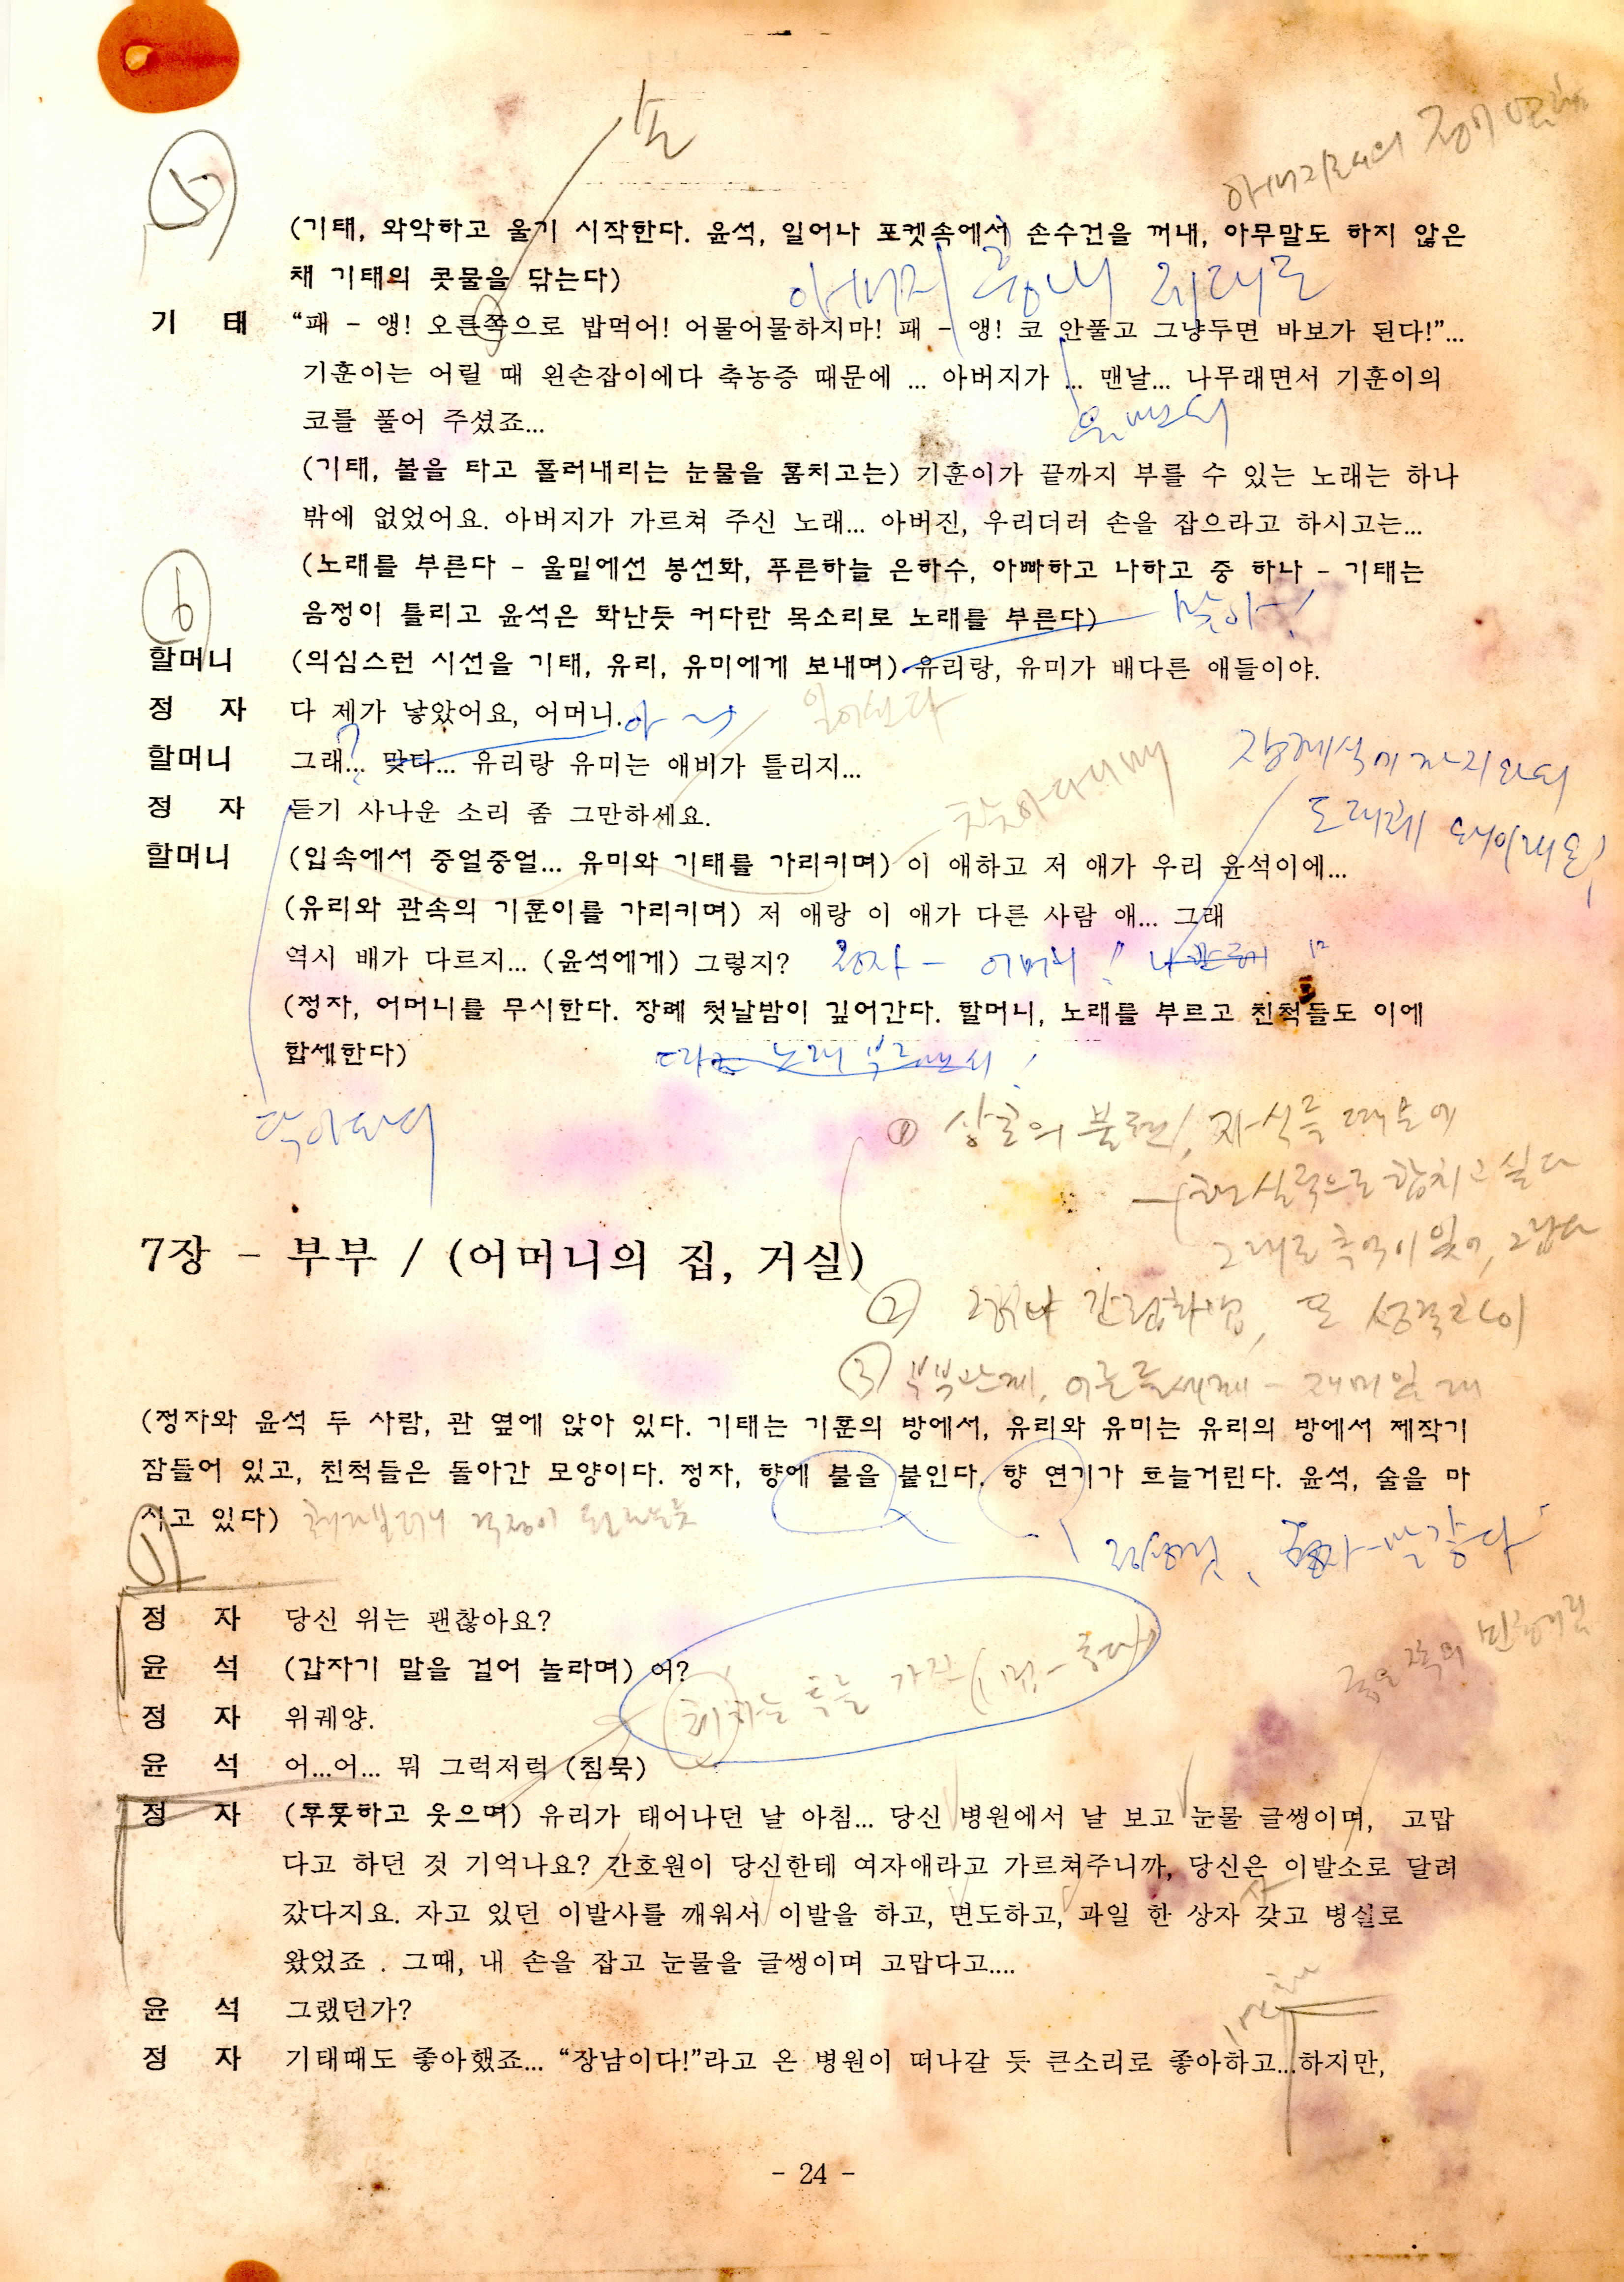 손
5
(기태, 와악하고 울기 시작한다. 윤석, 일어나 포켓속에서 손수건을 꺼내, 아무말도 하지 않은
채 기태의 콧물을 닦는다)
아버지 흉내 제대로
기 태 “패 - 앵! 오른쪽으로 밥먹어! 어물어물하지마! 패 - 앵! 코 안풀고 그냥두면 바보가 된다!”...
기훈이는 어릴 때 왼손잡이에다 축농증 때문에 ... 아버지가 ... 맨날... 나무래면서 기훈이의
코를 풀어 주셨죠...
(기태, 볼을 타고 흘러내리는 눈물을 훔치고는) 기훈이가 끝까지 부를 수 있는 노래는 하나
밖에 없었어요. 아버지가 가르쳐 주신 노래... 아버진, 우리더러 손을 잡으라고 하시고는...
(노래를 부른다 - 울밑에선 봉선화, 푸른하늘 은하수, 아빠하고 나하고 중 하나 - 기태는
6
음정이 틀리고 윤석은 화난듯 커다란 목소리로 노래를 부른다) 맞아!
할머니 (의심스런 시선을 기태, 유리, 유미에게 보내며) 유리랑, 유미가 배다른 애들이야.
정 자 다 제가 낳았어요, 어머니.
할머니 그래... 맞다... 유리랑 유미는 애비가 틀리지...
정 자 듣기 사나운 소리 좀 그만하세요.
할머니 (입속에서 중얼중얼... 유미와 기태를 가리키며) 이 애하고 저 애가 우리 윤석이에...
(유리와 관속의 기훈이를 가리키며) 저 애랑 이 애가 다른 사람 애... 그래
역시 배가 다르지... (윤석에게) 그렇지? 정자 - 어머니!
(정자, 어머니를 무시한다. 장례 첫날밤이 깊어간다. 할머니, 노래를 부르고 친척들도 이에
합세한다)
① 상호의 불편, 자식들 때문에
현실적으로 합치고 싶다
그대로 추억이 있어,
7장 - 부부 / (어머니의 집, 거실)
② 성격차이
③ 부부관계, 어른들세계 -
(정자와 윤석 두 사람, 관 옆에 앉아 있다. 기태는 기훈의 방에서, 유리와 유미는 유리의 방에서 제작기
잠들어 있고, 친척들은 돌아간 모양이다. 정자, 향에 불을 붙인다. 향 연기가 흐늘거린다. 윤석, 술을 마
시고 있다)
1
정 자 당신 위는 괜찮아요?
윤 석 (갑자기 말을 걸어 놀라며) 어?
정 자 위궤양.
윤 석 어...어... 뭐 그럭저럭 (침묵)
정 자 (후훗하고 웃으며) 유리가 태어나던 날 아침... 당신 병원에서 날 보고 눈물 글썽이며, 고맙
다고 하던 것 기억나요? 간호원이 당신한테 여자애라고 가르쳐주니까, 당신은 이발소로 달려
갔다지요. 자고 있던 이발사를 깨워서 이발을 하고, 면도하고, 과일 한 상자 갖고 병실로
왔었죠 . 그때, 내 손을 잡고 눈물을 글썽이며 고맙다고....
윤 석 그랬던가?
정 자 기태때도 좋아했죠... “장남이다!”라고 온 병원이 떠나갈 듯 큰소리로 좋아하고...하지만,
- 24 -